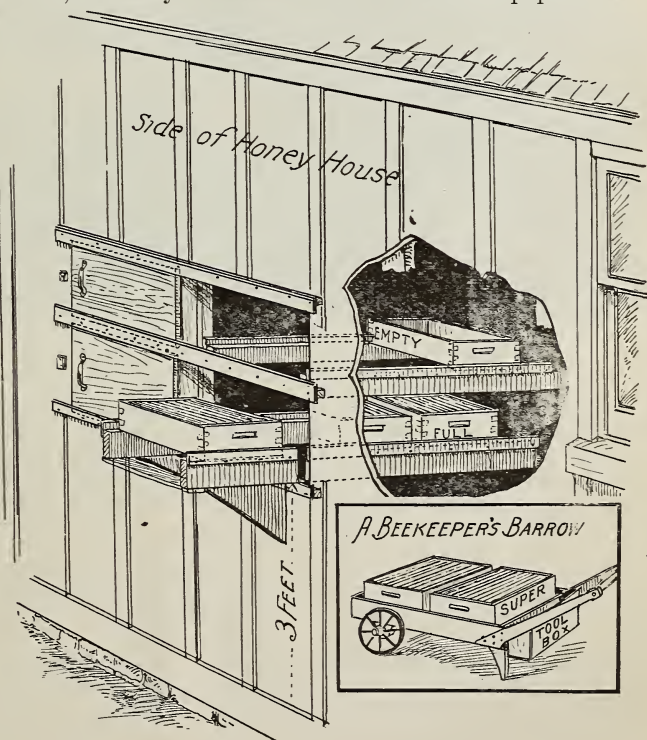 Side of Honey House
EMPTY
FULL
3 FEET
A BEEKEEPER'S BARROW
SUPER
TOOL
BOX